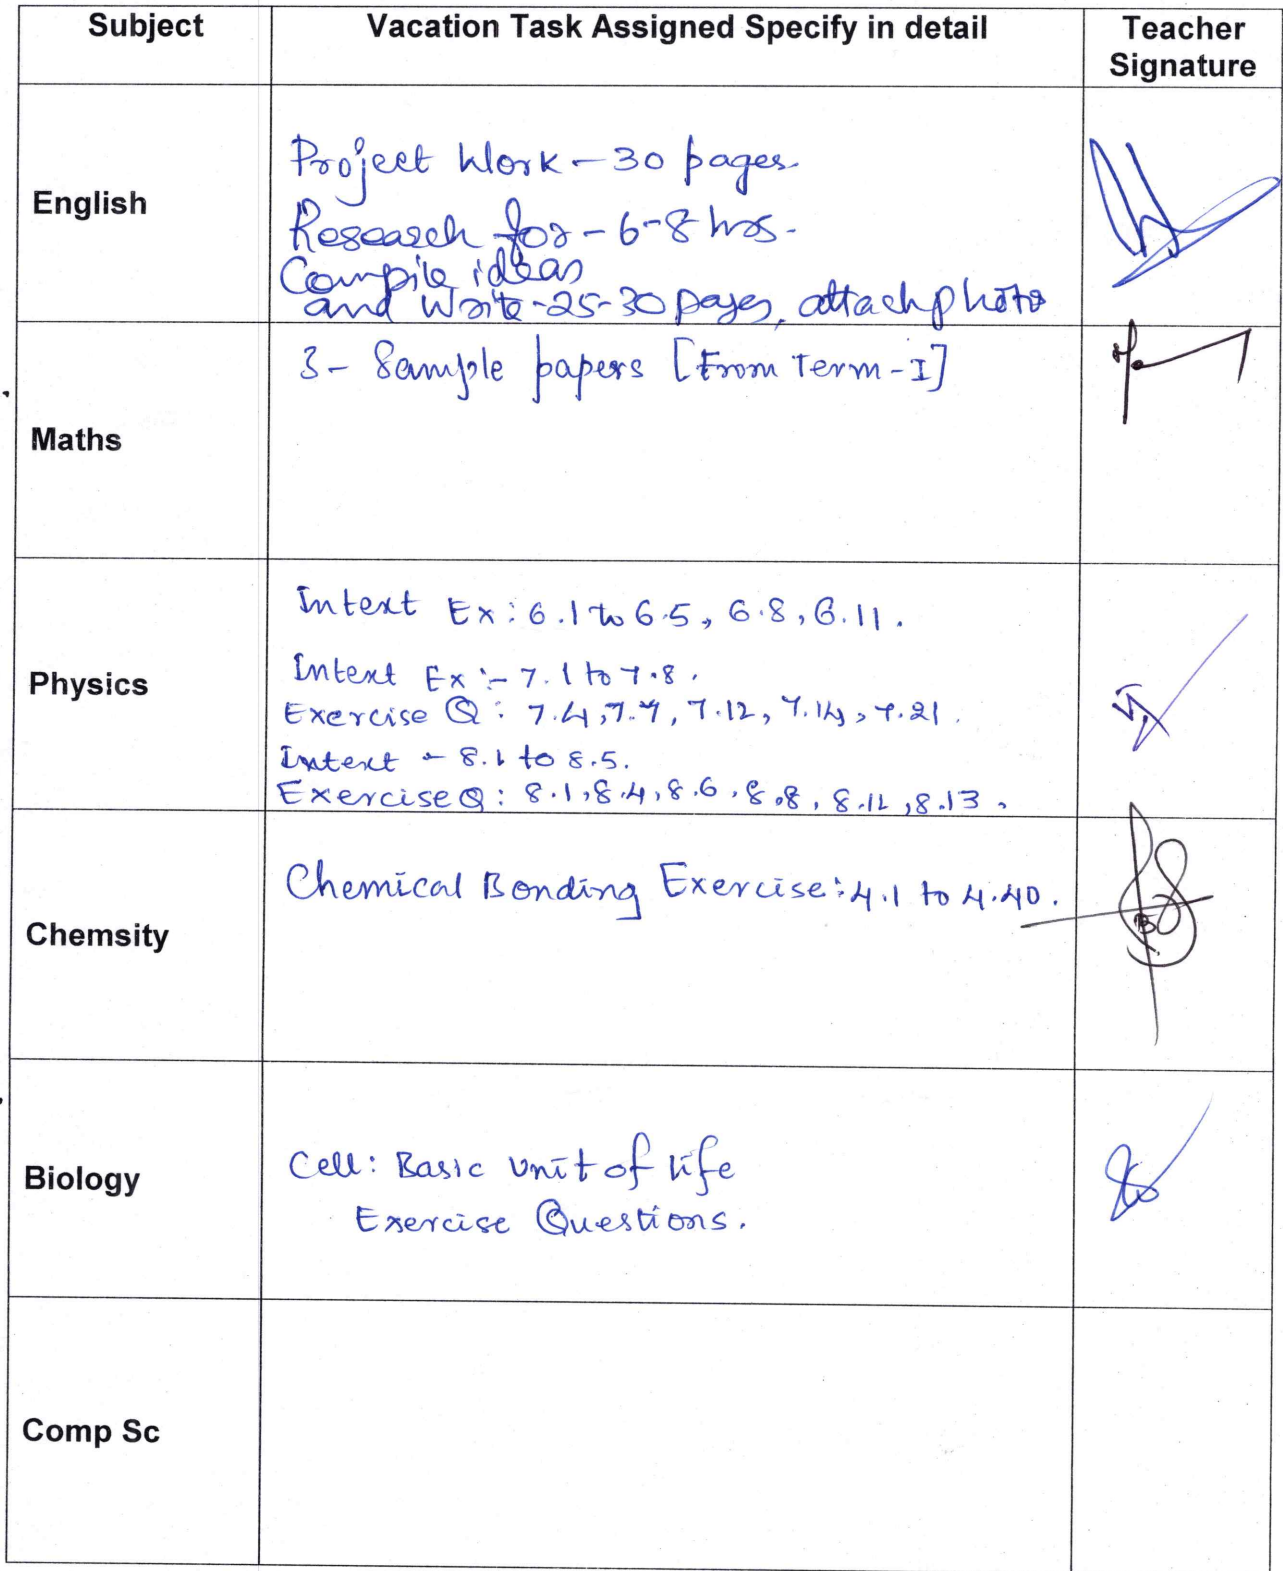 Subject Vacation Task Assigned Specify in detail Teacher Signature
English
Project Work - 30 pages.
Research for - 6-8 hrs.
Compile ideas
and Write - 25-30 pages, attach photo
Maths
3 - Sample papers [From Term - I]
Physics
Intext Ex : 6.1 to 6.5, 6.8, 6.11.
Intext Ex :- 7.1 to 7.8.
Exercise Q : 7.4, 7.7, 7.12, 7.14, 7.21.
Intext - 8.1 to 8.5.
Exercise Q : 8.1, 8.4, 8.6, 8.8, 8.12, 8.13.
Chemsity
Chemical Bonding Exercise: 4.1 to 4.40.
Biology
Cell: Basic unit of life
Exercise Questions.
Comp Sc